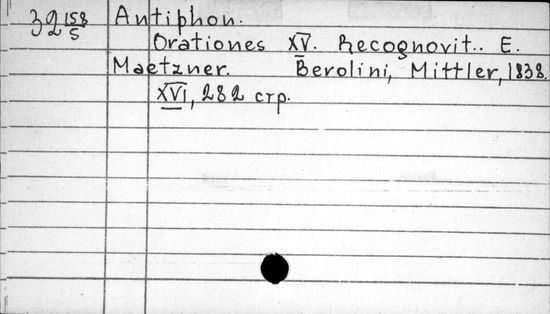 32 158/5 Antiphon.
Orationes XV. Recognovit.. E.
Maetzner. Berolini, Mittler, 1838.
XVI, 282 стр.